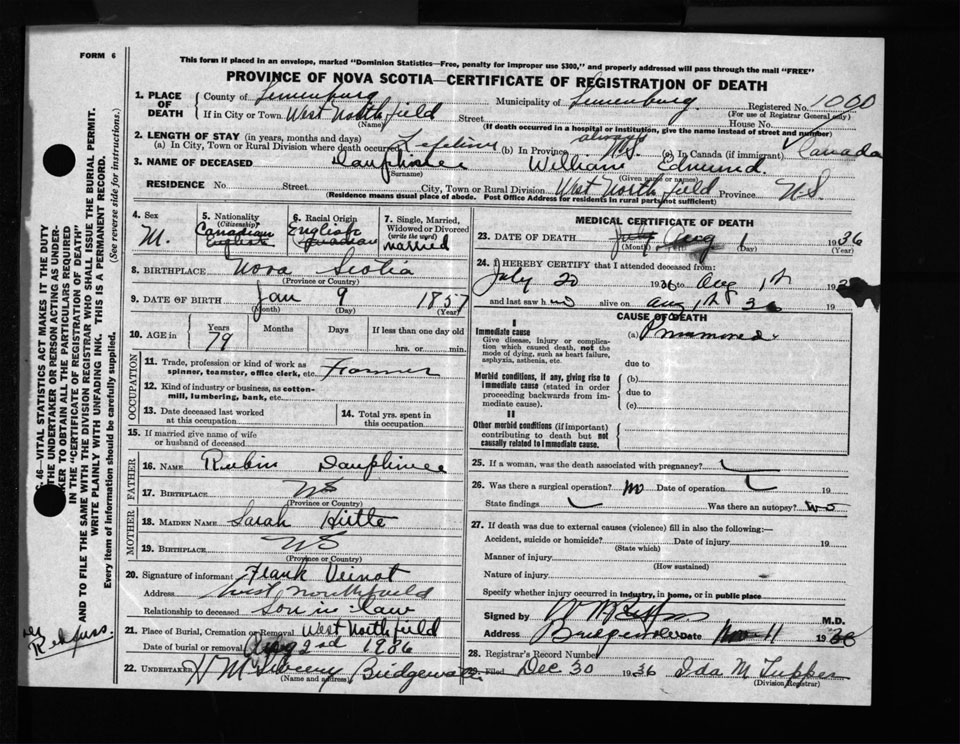 FORM 6
This form if placed in an envelope, marked "Dominion Statistics—Free, penalty for improper use $300," and properly addressed will pass through the mail "FREE"
PROVINCE OF NOVA SCOTIA—CERTIFICATE OF REGISTRATION OF DEATH
1. PLACE OF DEATH
County of Lunenburg Municipality of Lunenburg Registered No. 1000
(For use of Registrar General only)
If in City or Town West Northfield Street House No.
(Name) (If death occurred in a hospital or institution, give the name instead of street and number)
2. LENGTH OF STAY (in years, months and days)
(a) In City, Town or Rural Division where death occurred Lifetime (b) In Province always N.S. (c) In Canada (if immigrant) Canada
3. NAME OF DECEASED Dauphinee William Edmund.
(Surname) (Given name or names)
RESIDENCE No. Street City, Town or Rural Division West Northfield Province N.S
(Residence means usual place of abode. Post Office Address for residents in rural parts not sufficient)
4. Sex
M.
5. Nationality
(Citizenship)
Canadian
English
6. Racial Origin
English
Canadian
7. Single, Married, Widowed or Divorced
(write the word)
married
8. BIRTHPLACE Nova Scotia
(Province or Country)
9. DATE OF BIRTH Jan 9 1857
(Month) (Day) (Year)
10. AGE in Years Months Days If less than one day old
79 hrs. or min.
OCCUPATION
11. Trade, profession or kind of work as spinner, teamster, office clerk, etc. Farmer
12. Kind of industry or business, as cotton-mill, lumbering, bank, etc.
13. Date deceased last worked at this occupation
14. Total yrs. spent in this occupation.
15. If married give name of wife or husband of deceased
FATHER
16. NAME Rubin Dauphinee
17. BIRTHPLACE NS
(Province or Country)
MOTHER
18. MAIDEN NAME Sarah Hirtle
19. BIRTHPLACE NS
(Province or Country)
20. Signature of informant Frank Veinot
Address West Northfield
Relationship to deceased Son in law
21. Place of Burial, Cremation or Removal West Northfield
Date of burial or removal Aug 2nd 1936
22. UNDERTAKER Bridgewater
(Name and address)
MEDICAL CERTIFICATE OF DEATH
23. DATE OF DEATH July Aug 1 1936
(Month) (Day) (Year)
24. I HEREBY CERTIFY that I attended deceased from:
July 20 1936 to Aug 1st 193
and last saw h alive on Aug 1st 36
CAUSE OF DEATH
I
Immediate cause
Give disease, injury or complication which caused death, not the mode of dying, such as heart failure, asphyxia, asthenia, etc.
(a)
due to
Morbid conditions, if any, giving rise to immediate cause (stated in order proceeding backwards from immediate cause).
(b)
due to
(c)
II
Other morbid conditions (if important) contributing to death but not causally related to immediate cause.
25. If a woman, was the death associated with pregnancy?
26. Was there a surgical operation? no Date of operation 19
State findings Was there an autopsy? no
27. If death was due to external causes (violence) fill in also the following:—
Accident, suicide or homicide? Date of injury 19
(State which)
Manner of injury
(How sustained)
Nature of injury
Specify whether injury occurred in industry, in home, or in public place
Signed by M.D.
Address Bridgewater Date Nov 11 1936
28. Registrar's Record Number
Filed Dec 30 1936 Ida M. Tupper
(Division Registrar)
C. 46— VITAL STATISTICS ACT MAKES IT THE DUTY
OF THE UNDERTAKER OR PERSON ACTING AS UNDERTAKER TO OBTAIN ALL THE PARTICULARS REQUIRED
IN THE "CERTIFICATE OF REGISTRATION OF DEATH"
AND TO FILE THE SAME WITH THE DIVISION REGISTRAR WHO SHALL ISSUE THE BURIAL PERMIT.
WRITE PLAINLY WITH UNFADING INK. THIS IS A PERMANENT RECORD.
Every item of information should be carefully supplied.
(See reverse side for instructions.)